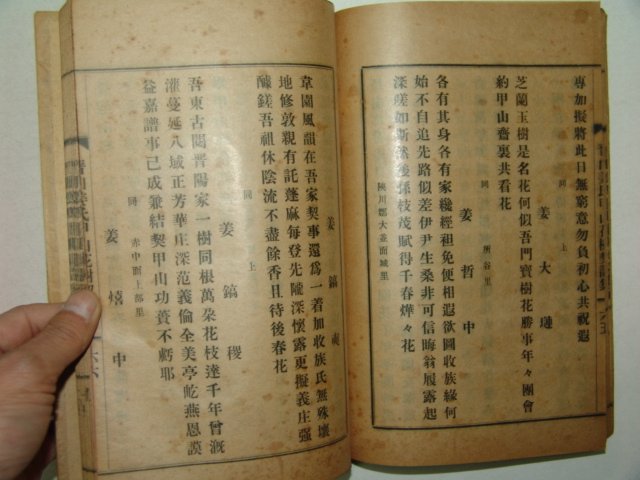 專加擬將此日無窮意勿負初心共祝遐
姜大璉
芝蘭玉樹是名花何似吾門寶樹花勝事年々團會
約甲山齋裏共看花
同 所谷里
姜哲中
各有其身各有家纔經祖免便相遐欲圖收族緣何
始不自追先路似差伊尹生桑非可信晦翁履露起
深嗟如斯然後孫枝茂賦得千春燁々花
陜川郡大並面城里
姜鎬
韋園風韻在吾家契事還爲一着加收族氏無殊壞
地修敦親有託蓬麻每登先隴深懷露更擬義庄强
醵鎈吾祖休陰流不盡餘香且待後春花
同 上
姜鎬稷
吾東古閥晋陽家一樹同根萬朶花枝達千年曾漑
灌蔓延八域正芳華庄深范義倫全美亭屹燕恩謨
益嘉譜事已成兼結契甲山功蕢不虧耶
同 赤中面上部里
姜熺中